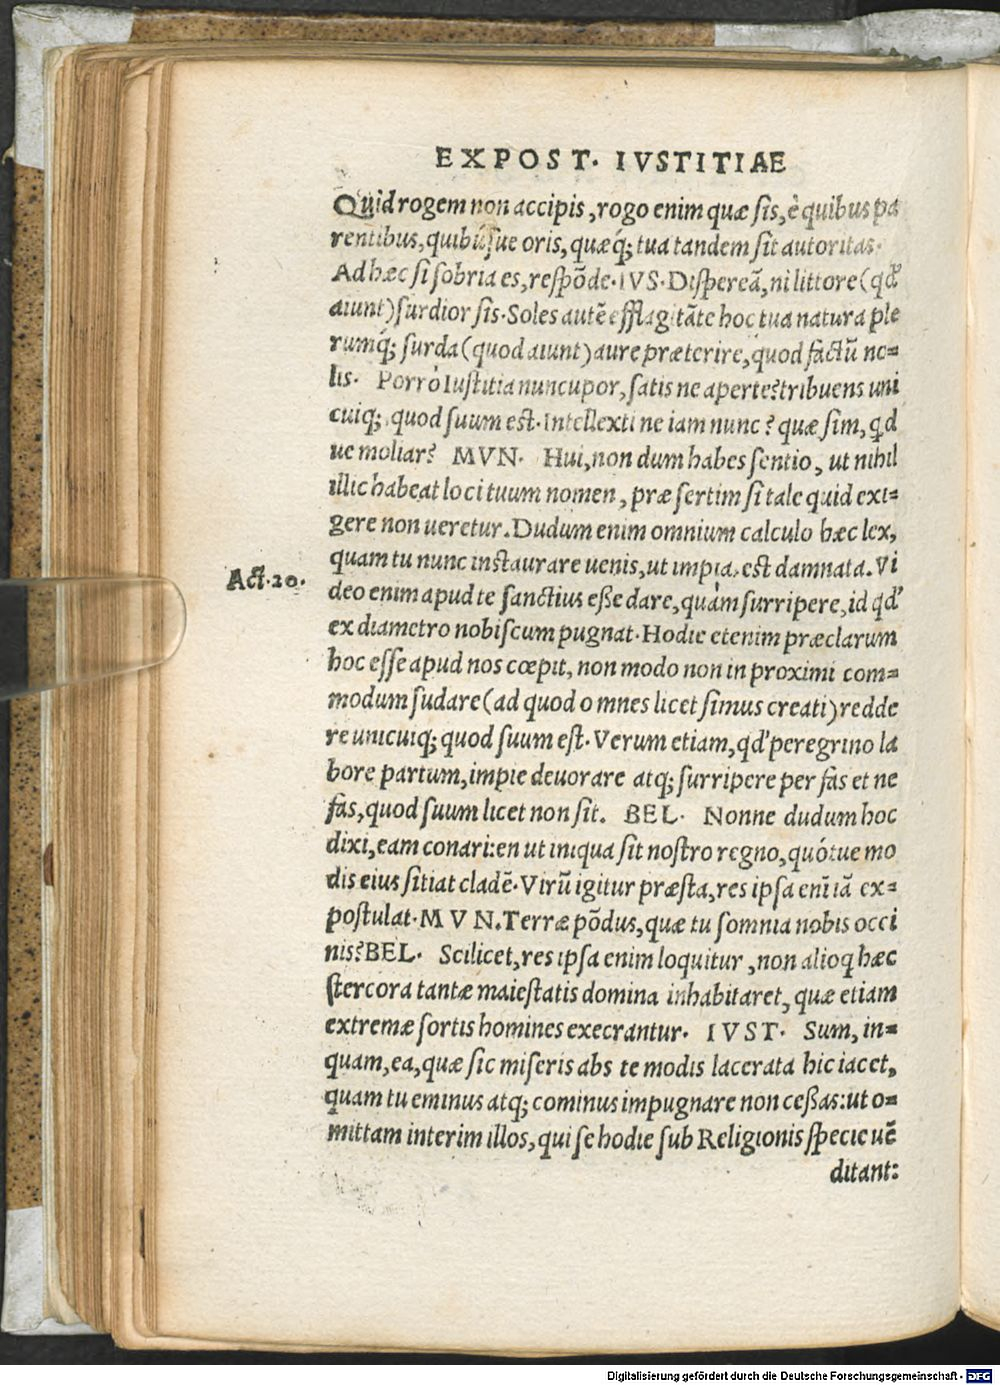 EXPOST. IVSTITIAE
Quid rogem non accipis, rogo enim quæ sis, è quibus pa
rentibus, quibúsue oris, quæq́; tua tandem sit autoritas.
Ad hæc si sobria es, respõde. IVS. Dispereã, ni littore (qđ
aiunt) surdior sis. Soles autẽ efflagitãte hoc tua natura ple
rumq́; surda (quod aiunt) aure præterire, quod factũ no=
lis. Porrò Iustitia nuncupor, satis ne aperte? tribuens uni
cuiq; quod suum est. Intellexti ne iam nunc? quæ sim, qd
ue moliar? MVN. Hui, non dum habes sentio, ut nihil
illic habeat loci tuum nomen, præsertim si tale quid exi=
gere non ueretur. Dudum enim omnium calculo hæc lex,
quam tu nunc instaurare uenis, ut impia, est damnata. Vi
Act. 20.
deo enim apud te sanctius eße dare, quàm surripere, id qđ
ex diametro nobiscum pugnat. Hodie etenim præclarum
hoc esse apud nos cœpit, non modo non in proximi com=
modum sudare (ad quod omnes licet simus creati) redde
re unicuiq; quod suum est. Verum etiam, qđ peregrino la
bore partum, impie deuorare atq; surripere per fas et ne
fas, quod suum licet non sit. BEL. Nonne dudum hoc
dixi, eam conari: en ut iniqua sit nostro regno, quót́ue mo
dis eius sitiat cladẽ. Virũ igitur præsta, res ipsa eñi iã ex=
postulat. MVN. Terræ põdus, quæ tu somnia nobis occi
nis? BEL. Scilicet, res ipsa enim loquitur, non alioq hæc
stercora tantæ maiestatis domina inhabitaret, quæ etiam
extremæ sortis homines execrantur. IVST. Sum, in=
quam, ea, quæ sic miseris abs te modis lacerata hic iacet,
quam tu eminus atq; cominus impugnare non ceßas: ut o=
mittam interim illos, qui se hodie sub Religionis specie uẽ
ditant:
Digitalisierung gefördert durch die Deutsche Forschungsgemeinschaft - DFG